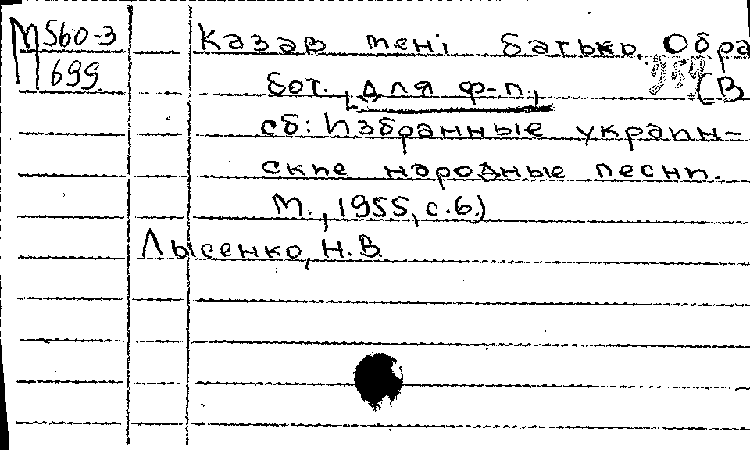 М560-3
699
Казав мені батько. Обра
бот. [для ф-п.] (В
сб: Избранные украин-
ские народные песни.
М., 1955, с.6.)
Лысенко, Н.В.